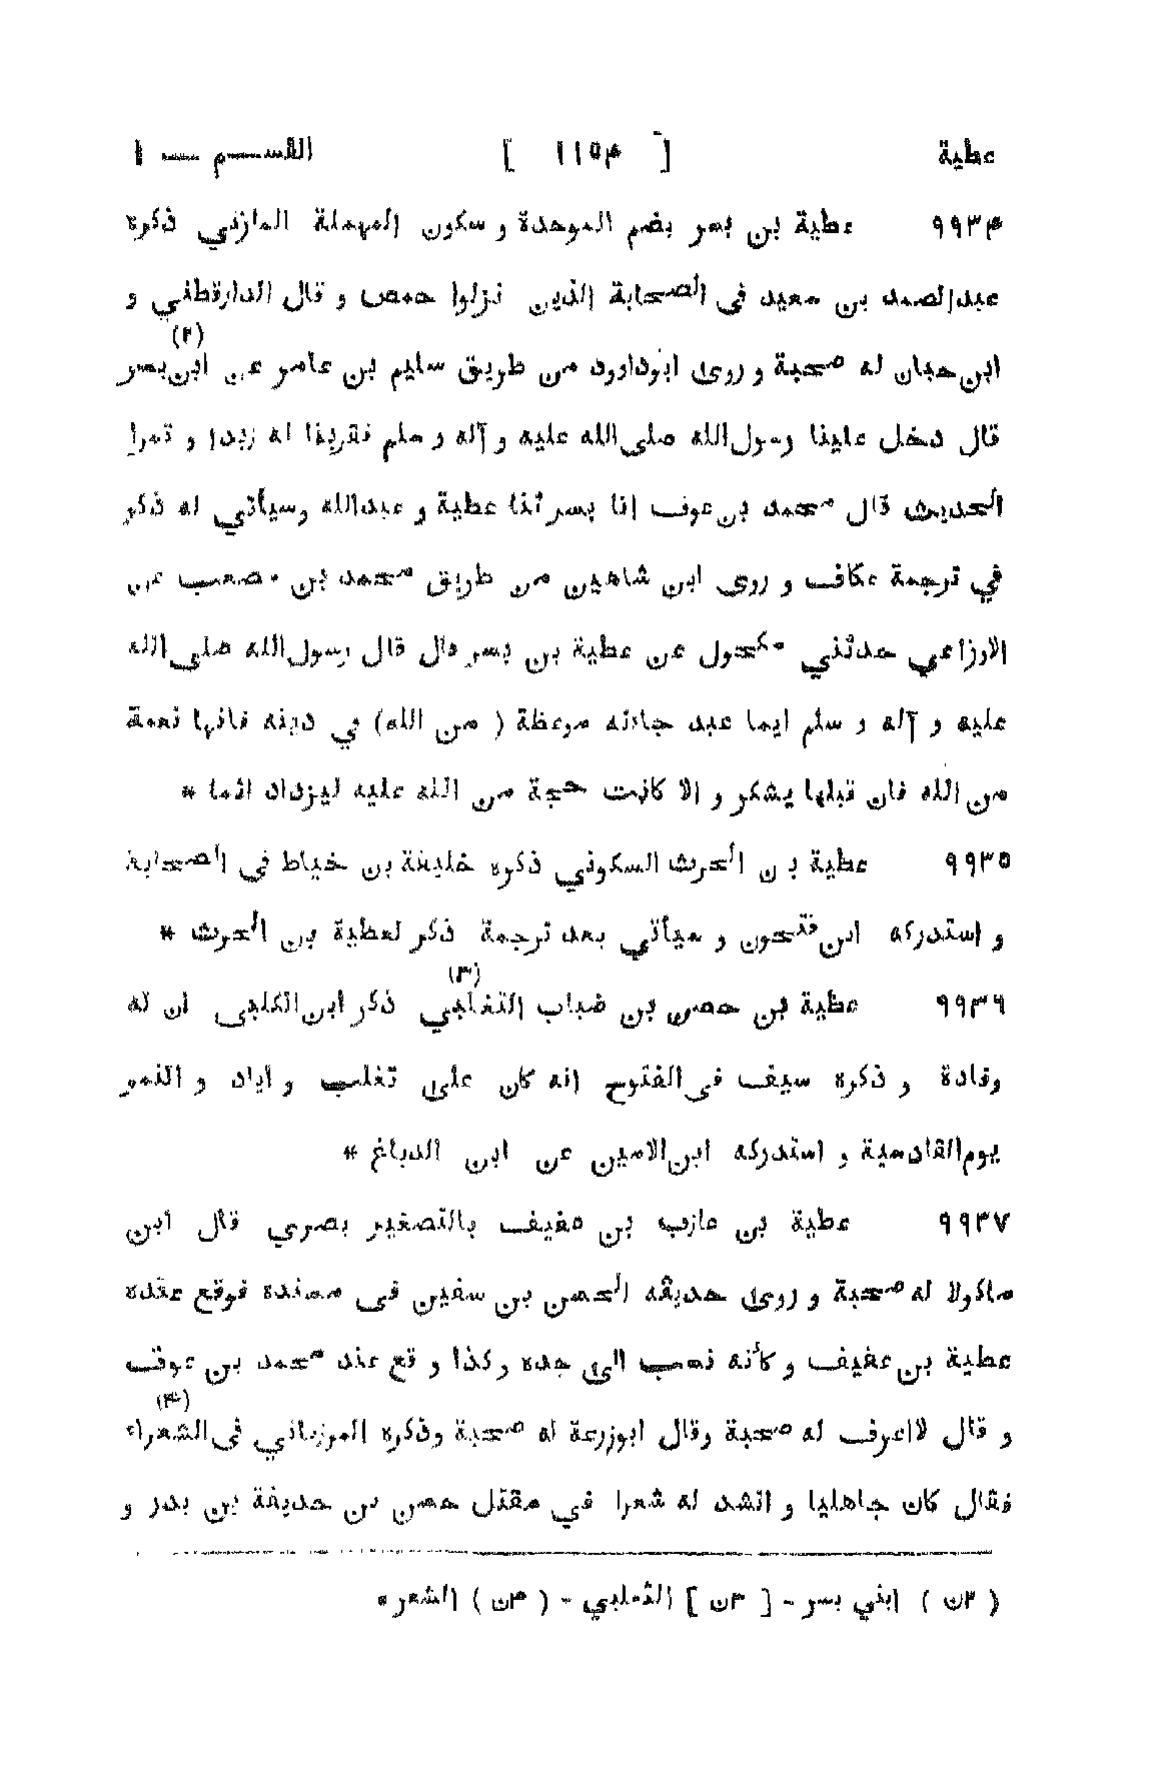 عطية [ ١١٥۴ ] القســم — ١
٩٩٣۴ عطية بن بسر بضم الموحدة و سكون المهملة المازني ذكره
عبدالصمد بن سعيد فى الصحابة الذين نزلوا حمص و قال الدارقطني و
(٢)
ابن حبان له صحبة و روى ابوداوود من طريق سليم بن عامر عن ابن بسر
قال دخل علينا رسول الله صلى الله عليه و آله و سلم فقربنا له زبدا و تمرا
الحديث قال محمد بن عوف ابنا بسر ثنا عطية و عبدالله وسيأتي له ذكر
في ترجمة عكاف و روى ابن شاهين من طريق محمد بن مصعب عن
الاوزاعي حدثني مكحول عن عطية بن بسر قال قال رسول الله صلى الله
عليه و آله و سلم ايما عبد جاءته موعظة ( من الله) في دينه فانها نعمة
من الله فان قبلها يشكر و الا كانت حجة من الله عليه ليزداد اثما *
٩٩٣٥ عطية بن الحرث السكوني ذكره خليفة بن خياط في الصحابة
و استدركه ابن فتحون و سيأتي بعد ترجمة ذكر لعطية بن الحرث *
(٣)
٩٩٣٦ عطية بن حصن بن ضباب التغلبي ذكر ابن الكلبى ان له
وفادة و ذكره سيف فى الفتوح انه كان على تغلب و اياد و النمر
يوم القادسية و استدركه ابن الامين عن ابن الدباغ *
٩٩٣٧ عطية بن عازب بن عفيف بالتصغير بصري قال ابن
ماكولا له صحبة و روى حديثه الحسن بن سفين فى مسنده فوقع عنده
عطية بن عفيف و كأنه نسب الى جده و كذا و قع عند محمد بن عوف
(۴)
و قال لااعرف له صحبة وقال ابوزرعة له صحبة وذكره المرزباني فى الشعراء
فقال كان جاهليا و انشد له شعرا في مقتل حصن بن حذيفة بن بدر و
( ٢ن ) ابني بسر - [ ٣ن ] الثعلبي - ( ۴ن ) الشعر *